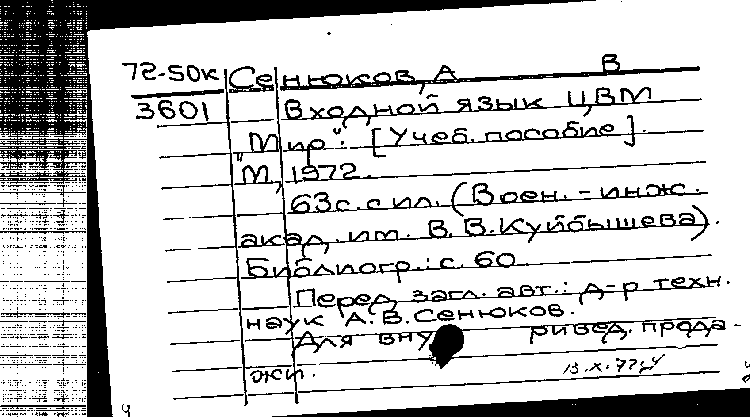 72-50к Сенюков, А В
3601 Входной язык ЦВМ
"Мир". [Учеб. пособие].
М, 1972.
63с. с ил. (Воен.-инж.
акад. им. В.В. Куйбышева).
Библиогр.: с. 60
Перед загл. авт.: д-р техн.
наук А.В. Сенюков.
Для вну ривед. прода-
жи.